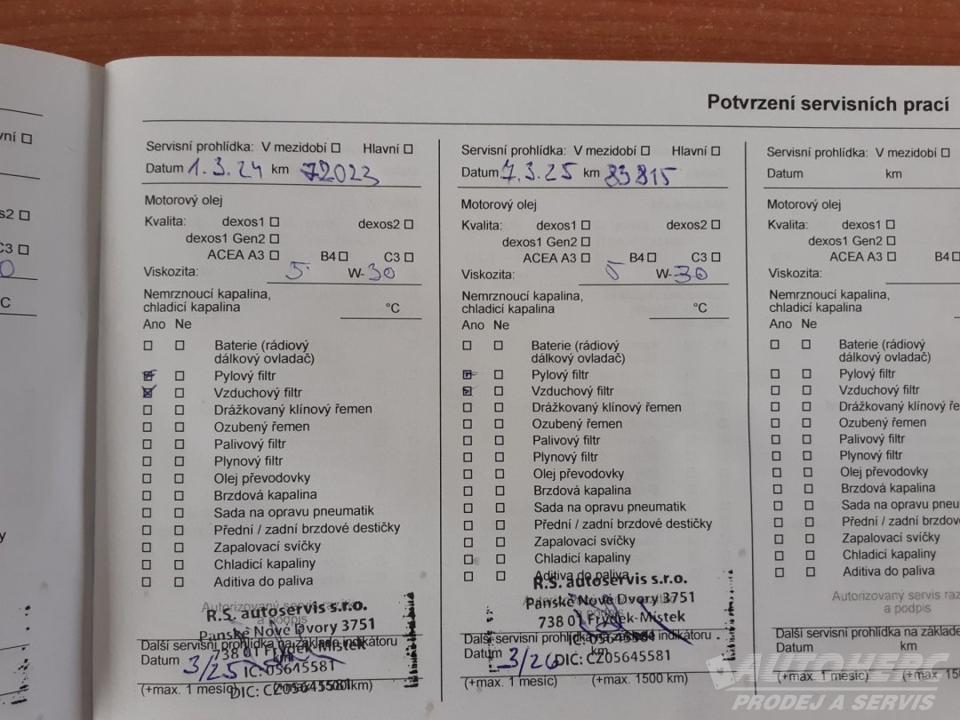 Potvrzení servisních prací
vní
s2
C3
C
y
Servisní prohlídka: V mezidobí Hlavní
Datum 1.3.24 km 72023
Motorový olej
Kvalita: dexos1 dexos2
dexos1 Gen2
ACEA A3 B4 C3
Viskozita: 5 W-30
Nemrznoucí kapalina,
chladicí kapalina °C
Ano Ne
Baterie (rádiový
dálkový ovladač)
Pylový filtr
Vzduchový filtr
Drážkovaný klínový řemen
Ozubený řemen
Palivový filtr
Plynový filtr
Olej převodovky
Brzdová kapalina
Sada na opravu pneumatik
Přední / zadní brzdové destičky
Zapalovací svíčky
Chladicí kapaliny
Aditiva do paliva
Autorizovaný servis
a podpis
R.S. autoservis s.r.o.
Panské Nové Dvory 3751
738 01 Frýdek-Místek
IČ: 05645581
DIČ: CZ05645581
Další servisní prohlídka na základě indikátoru
Datum 3/25
(+max. 1 měsíc) km)
Servisní prohlídka: V mezidobí Hlavní
Datum 7.3.25 km 83815
Motorový olej
Kvalita: dexos1 dexos2
dexos1 Gen2
ACEA A3 B4 C3
Viskozita: 5 W-30
Nemrznoucí kapalina,
chladicí kapalina °C
Ano Ne
Baterie (rádiový
dálkový ovladač)
Pylový filtr
Vzduchový filtr
Drážkovaný klínový řemen
Ozubený řemen
Palivový filtr
Plynový filtr
Olej převodovky
Brzdová kapalina
Sada na opravu pneumatik
Přední / zadní brzdové destičky
Zapalovací svíčky
Chladicí kapaliny
Aditiva do paliva
R.S. autoservis s.r.o.
Panské Nové Dvory 3751
738 01 Frýdek-Místek
IČ: 05645581
DIČ: CZ05645581
Další servisní prohlídka na základě indikátoru
Datum 3/26 km
(+max. 1 měsíc) (+max. 1500 km)
Servisní prohlídka: V mezidobí
Datum km
Motorový olej
Kvalita: dexos1
dexos1 Gen2
ACEA A3 B4
Viskozita:
Nemrznoucí kapalina,
chladicí kapalina
Ano Ne
Baterie (rádiový
dálkový ovladač)
Pylový filtr
Vzduchový filtr
Drážkovaný klínový ře
Ozubený řemen
Palivový filtr
Plynový filtr
Olej převodovky
Brzdová kapalina
Sada na opravu pneu
Přední / zadní brzdov
Zapalovací svíčky
Chladicí kapaliny
Aditiva do paliva
Autorizovaný servis raz
a podpis
Další servisní prohlídka na základě
Datum km
(+max. 1 měsíc) (+max. 150
AUTOHERC
PRODEJ A SERVIS